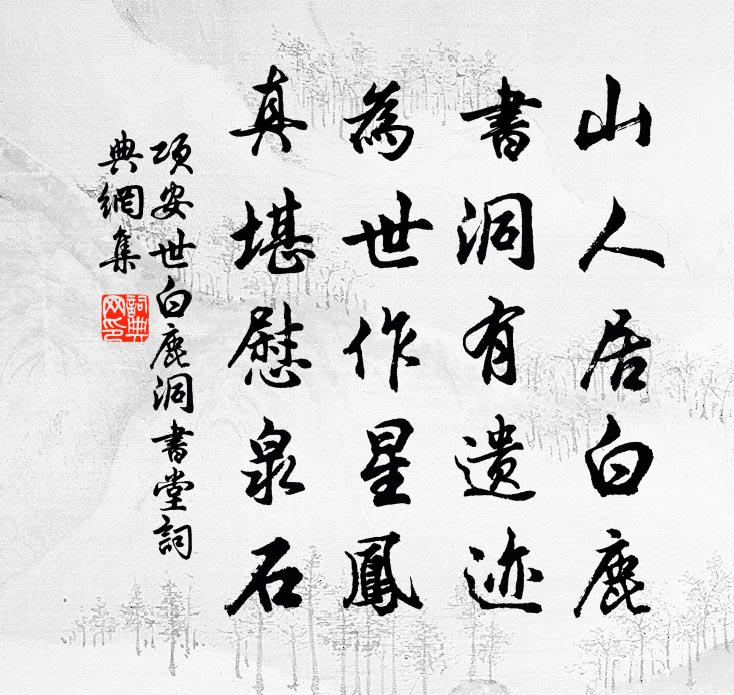 山人居白鹿
書洞有遺迹
為世作星鳳
真堪慰泉石
项安世白鹿洞書堂詞
典網集
詞典
网印